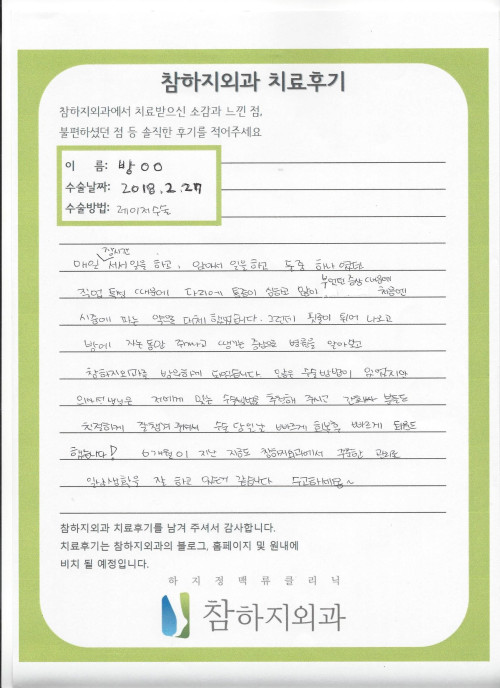 참하지외과 치료후기
참하지외과에서 치료받으신 소감과 느낀 점,
불편하셨던 점 등 솔직한 후기를 적어주세요
이 름: 방○○
수술날짜: 2018.2.27
수술방법: 레이저수술
장시간
매일 서서 일을 하고, 앉아서 일을 하고 둘중 하나 였던
직업 특성 때문에 다리에 통증이 심하고 많이 부었던 증상 때문에
처음엔
시중에 파는 약으로 대체 했었습니다. 그런데 핏줄이 튀어 나오고
밤에 자는동안 쥐나고 땡기는 증상으로 병원을 알아보고
참하지외과를 방문하게 되었습니다 많은 수술방법이 있었지만
의사선생님은 저에게 맞는 수술방법을 추천해 주시고 간호사 분들도
친절하게 잘챙겨주셔서 수술 당일날 빠르게 회복후 빠르게 퇴원도
했습니다! 6개월이 지난 지금도 참하지외과에서 꾸준한 관리로
일상생활을 잘 하고 있는거 같습니다 수고하세요~
참하지외과 치료후기를 남겨 주셔서 감사합니다.
치료후기는 참하지외과의 블로그, 홈페이지 및 원내에
비치 될 예정입니다.
하지정맥류클리닉
참하지외과